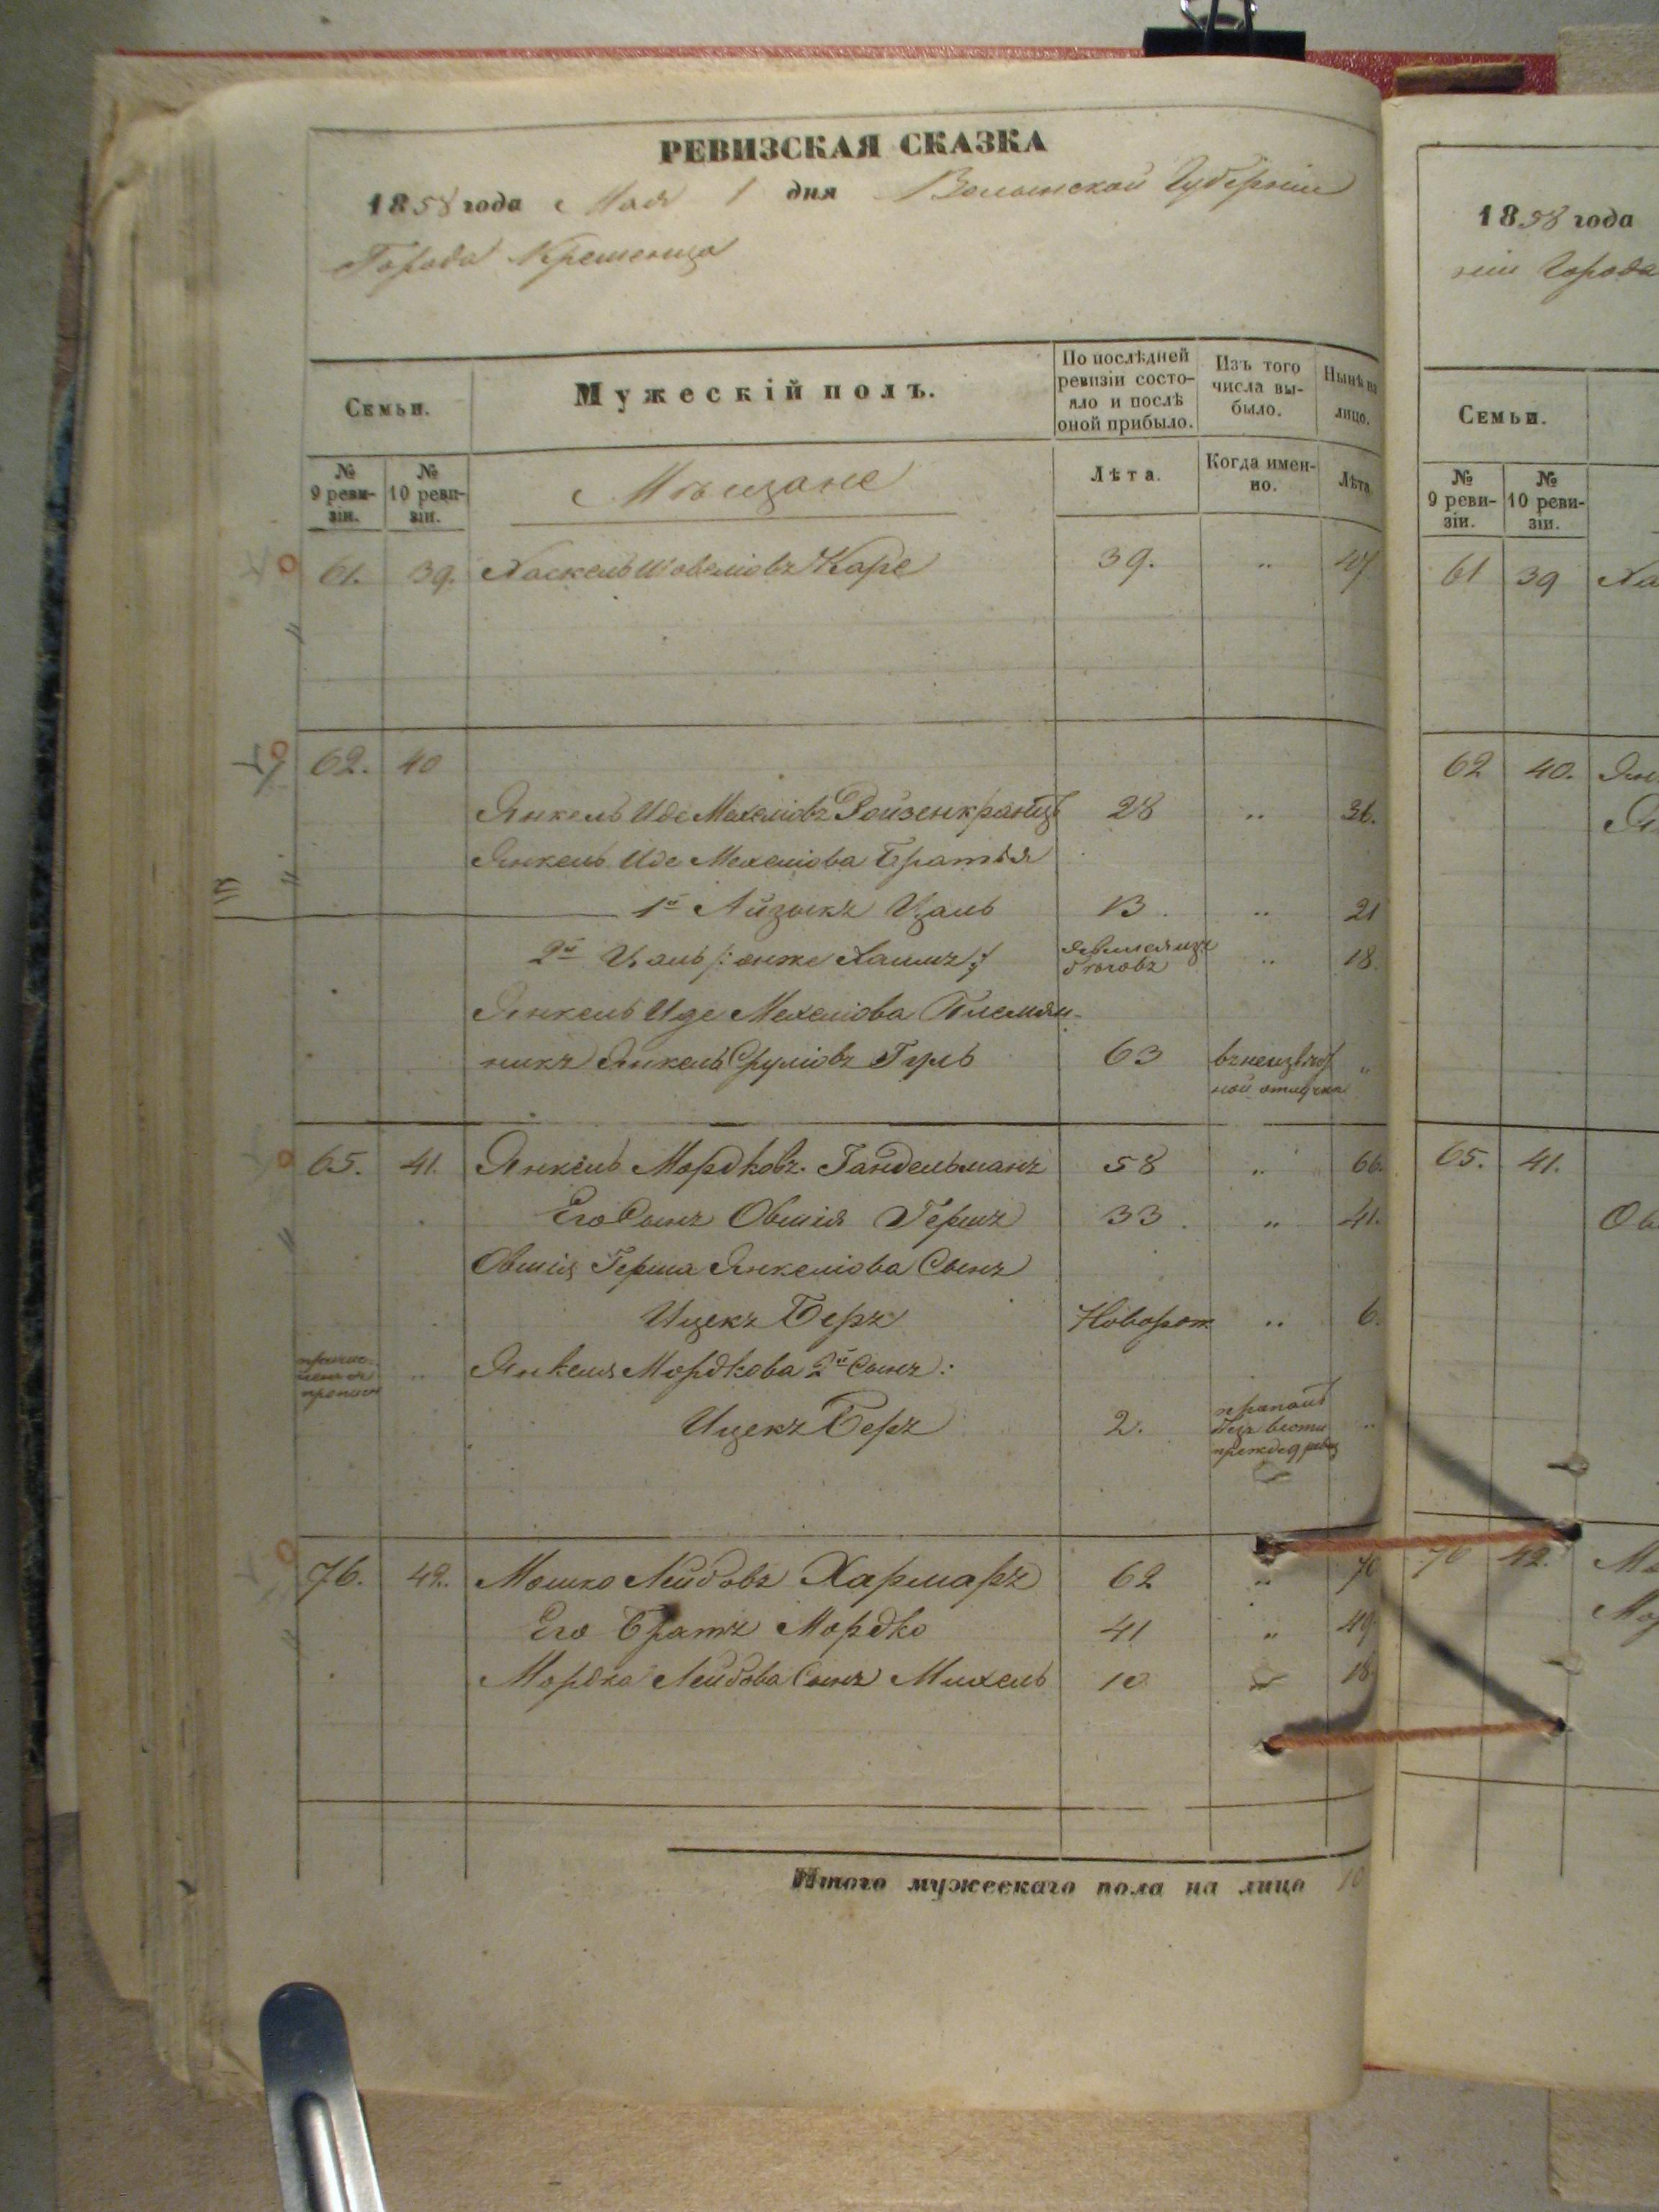 РЕВИЗСКАЯ СКАЗКА
1858 года Мая 1 дня Волынской Губерніи
Города Кременца
Семьи.
Мужескій полъ.
По послѣдней ревизіи состояло и послѣ оной прибыло.
Изъ того числа выбыло.
Нынѣ на лицо.
№ 9 ревизіи.
№ 10 ревизіи.
Мѣщане
Лѣта.
Когда именно.
Лѣта
61. 39. Хаскель Шовеліовъ Каре 39. „ 47
62. 40
Янкель Иде Мехеліовъ Ройзенкранцъ 28 „ 36.
Янкель Иде Мехеліова Братья
1й Айзыкъ Цаль 13. „ 21
2й Цаль /: онже Хаимъ :/ „ 18
Янкель Иде Мехеліова Племян-
никъ Янкель Сруліовъ Гуль 63 въ неизвѣст ной отлучкѣ „
65. 41. Янкель Мордковъ Гандельманъ 58 „ 66.
Его Сынъ Овшія Гершъ 33. „ 41.
Овшія Герша Янкеліова Сынъ
Ицекъ Беръ Новорож „ 6.
Янкеля Мордкова 2й Сынъ:
Ицекъ Беръ 2. пропалъ безъ вести прежде 9 ревиз „
76. 42. Мошко Лейбовъ Хармаръ 62 „ 70
Его Братъ Мордко 41 „ 49
Мордка Лейбова Сынъ Михель 10 18
Итого мужескаго пола на лицо 10
1858 года
ніи Города
Семьи.
№ 9 ревизіи.
№ 10 ревизіи.
61 39 Ха
62 40. Ян
Ян
65. 41.
Ов
76 42. Мо
Мор